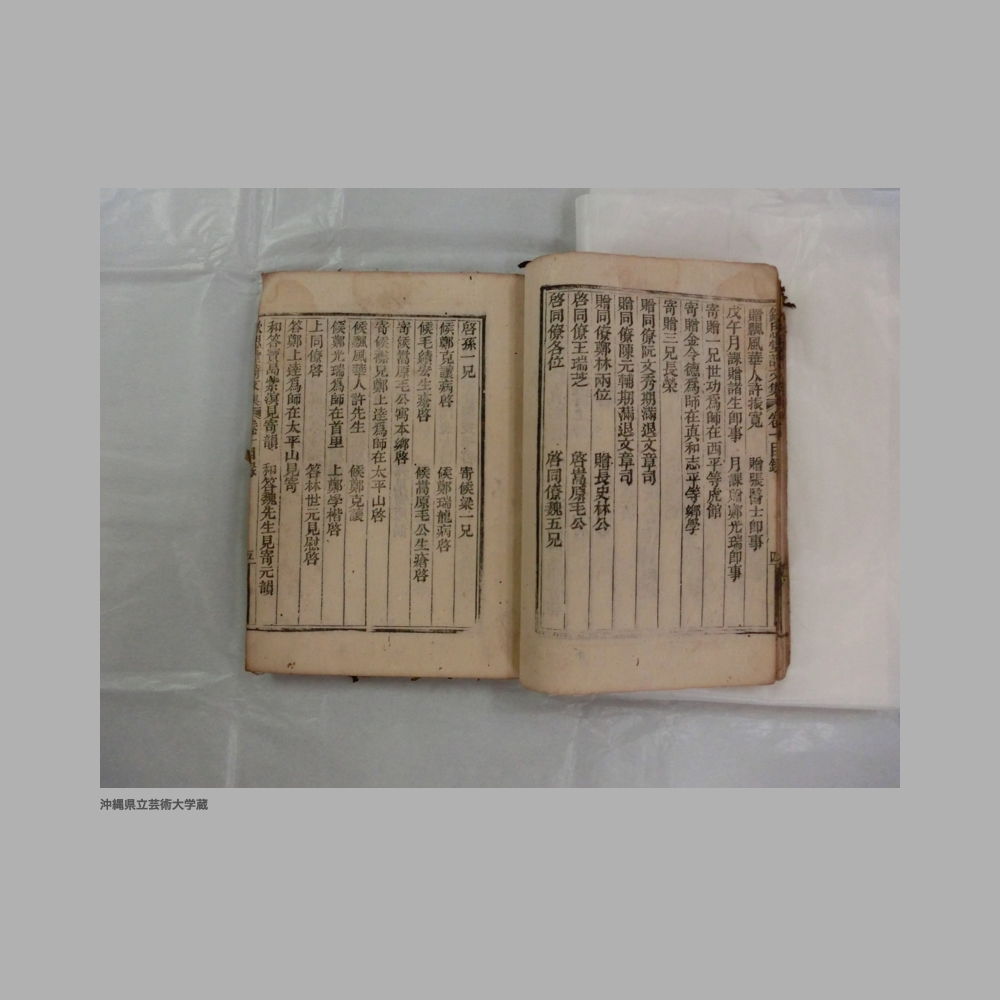 贈飄風華人許振寬 贈張醫士卽事
戊午月課贈諸生卽事 月課贈鄭光瑞卽事
寄贈一兄世功為師在西平等虎館
寄贈金令德為師在真和志平等鄉學
寄贈三兄長榮
贈同僚阮文秀期滿退文章司
贈同僚陳元輔期滿退文章司
贈同僚鄭林兩位 贈長史林公
啓同僚王瑞芝 啓嵩原毛公
啓同僚各位 啓同僚魏五兄
卷一目錄
四
啓孫一兄 寄候梁一兄
候鄭克讓病啓 候鄭瑞龍病啓
候毛績宏生瘡啓 候嵩原毛公生瘡啓
寄候嵩原毛公寓本鄉啓
寄候襟兄鄭上逵為師在太平山啓
候飄風華人許先生 候鄭克讓
候鄭光瑞為師在首里 上鄭學楷啓
上同僚啓 答林世元見慰啓
答鄭上逵為師在太平山見寄
和答賈島紫溟見寄韻 和答魏先生見寄元韻
五
沖縄県立芸術大学蔵